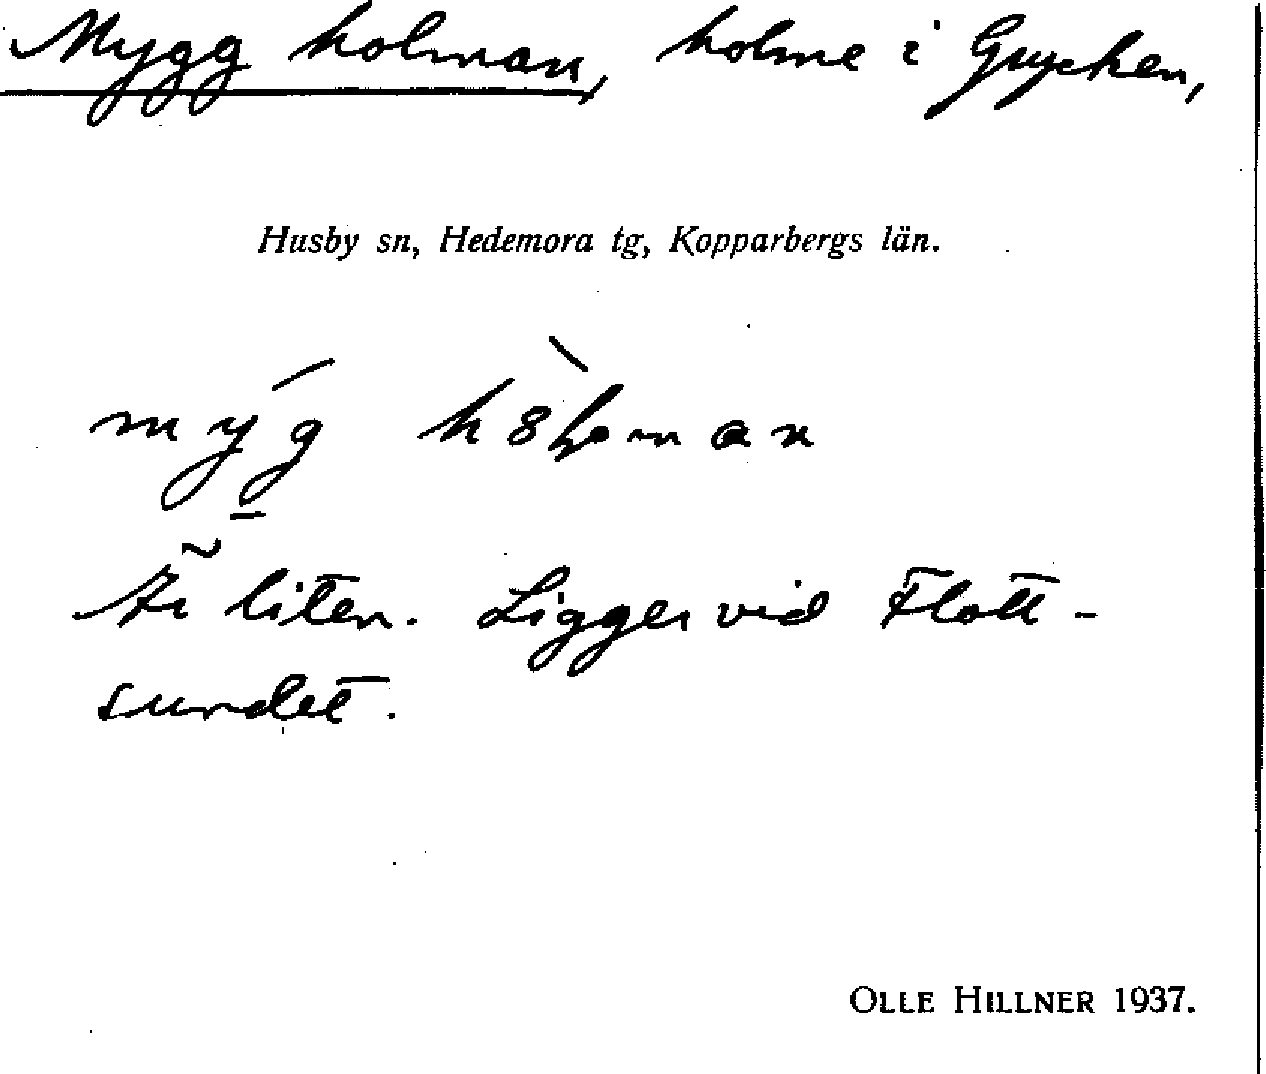 Myggholman, holme i Grycken,
Husby sn, Hedemora tg, Kopparbergs län.
Är liten. Ligger vid Flott-
sundet.
OLLE HILLNER 1937.